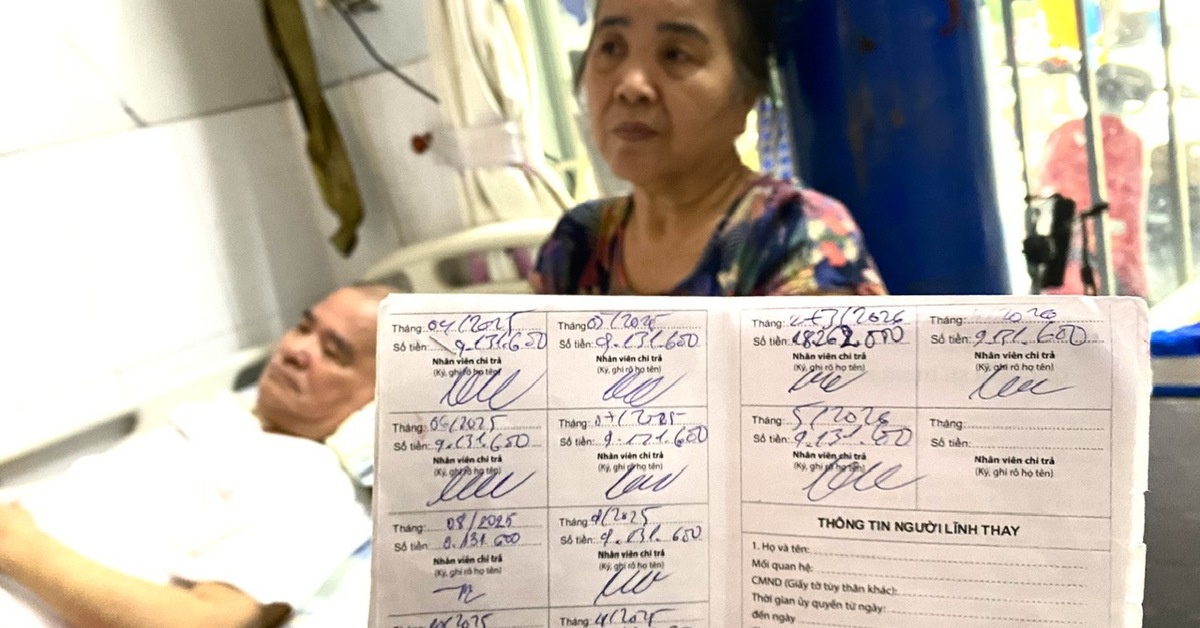 Tháng: 04/2025
Số tiền: 9.131.600
Nhân viên chi trả
(Ký, ghi rõ họ tên)
Tháng: /2025
Số tiền: 9.131.600
Nhân viên chi trả
(Ký, ghi rõ họ tên)
Tháng: 06/2025
Số tiền: 9.131.600
Nhân viên chi trả
(Ký, ghi rõ họ tên)
Tháng: 07/2025
Số tiền: 9.131.600
Nhân viên chi trả
(Ký, ghi rõ họ tên)
Tháng: 08/2025
Số tiền: 9.131.600
Nhân viên chi trả
(Ký, ghi rõ họ tên)
Tháng: 9/2025
Số tiền: 9.131.600
Nhân viên chi trả
(Ký, ghi rõ họ tên)
Tháng: /2025
Tháng: /2025
Tháng: 2+3/2026
Số tiền: 18.262.000
Nhân viên chi trả
(Ký, ghi rõ họ tên)
Tháng: 2026
Số tiền: 9.131.600
Nhân viên chi trả
(Ký, ghi rõ họ tên)
Tháng: 5/2026
Số tiền: 9.131.600
Nhân viên chi trả
(Ký, ghi rõ họ tên)
Tháng:
Số tiền:
Nhân viên chi trả
(Ký, ghi rõ họ tên)
THÔNG TIN NGƯỜI LĨNH THAY
1. Họ và tên:
Mối quan hệ:
CMND (Giấy tờ tùy thân khác):
Thời gian ủy quyền từ ngày:
đến ngày